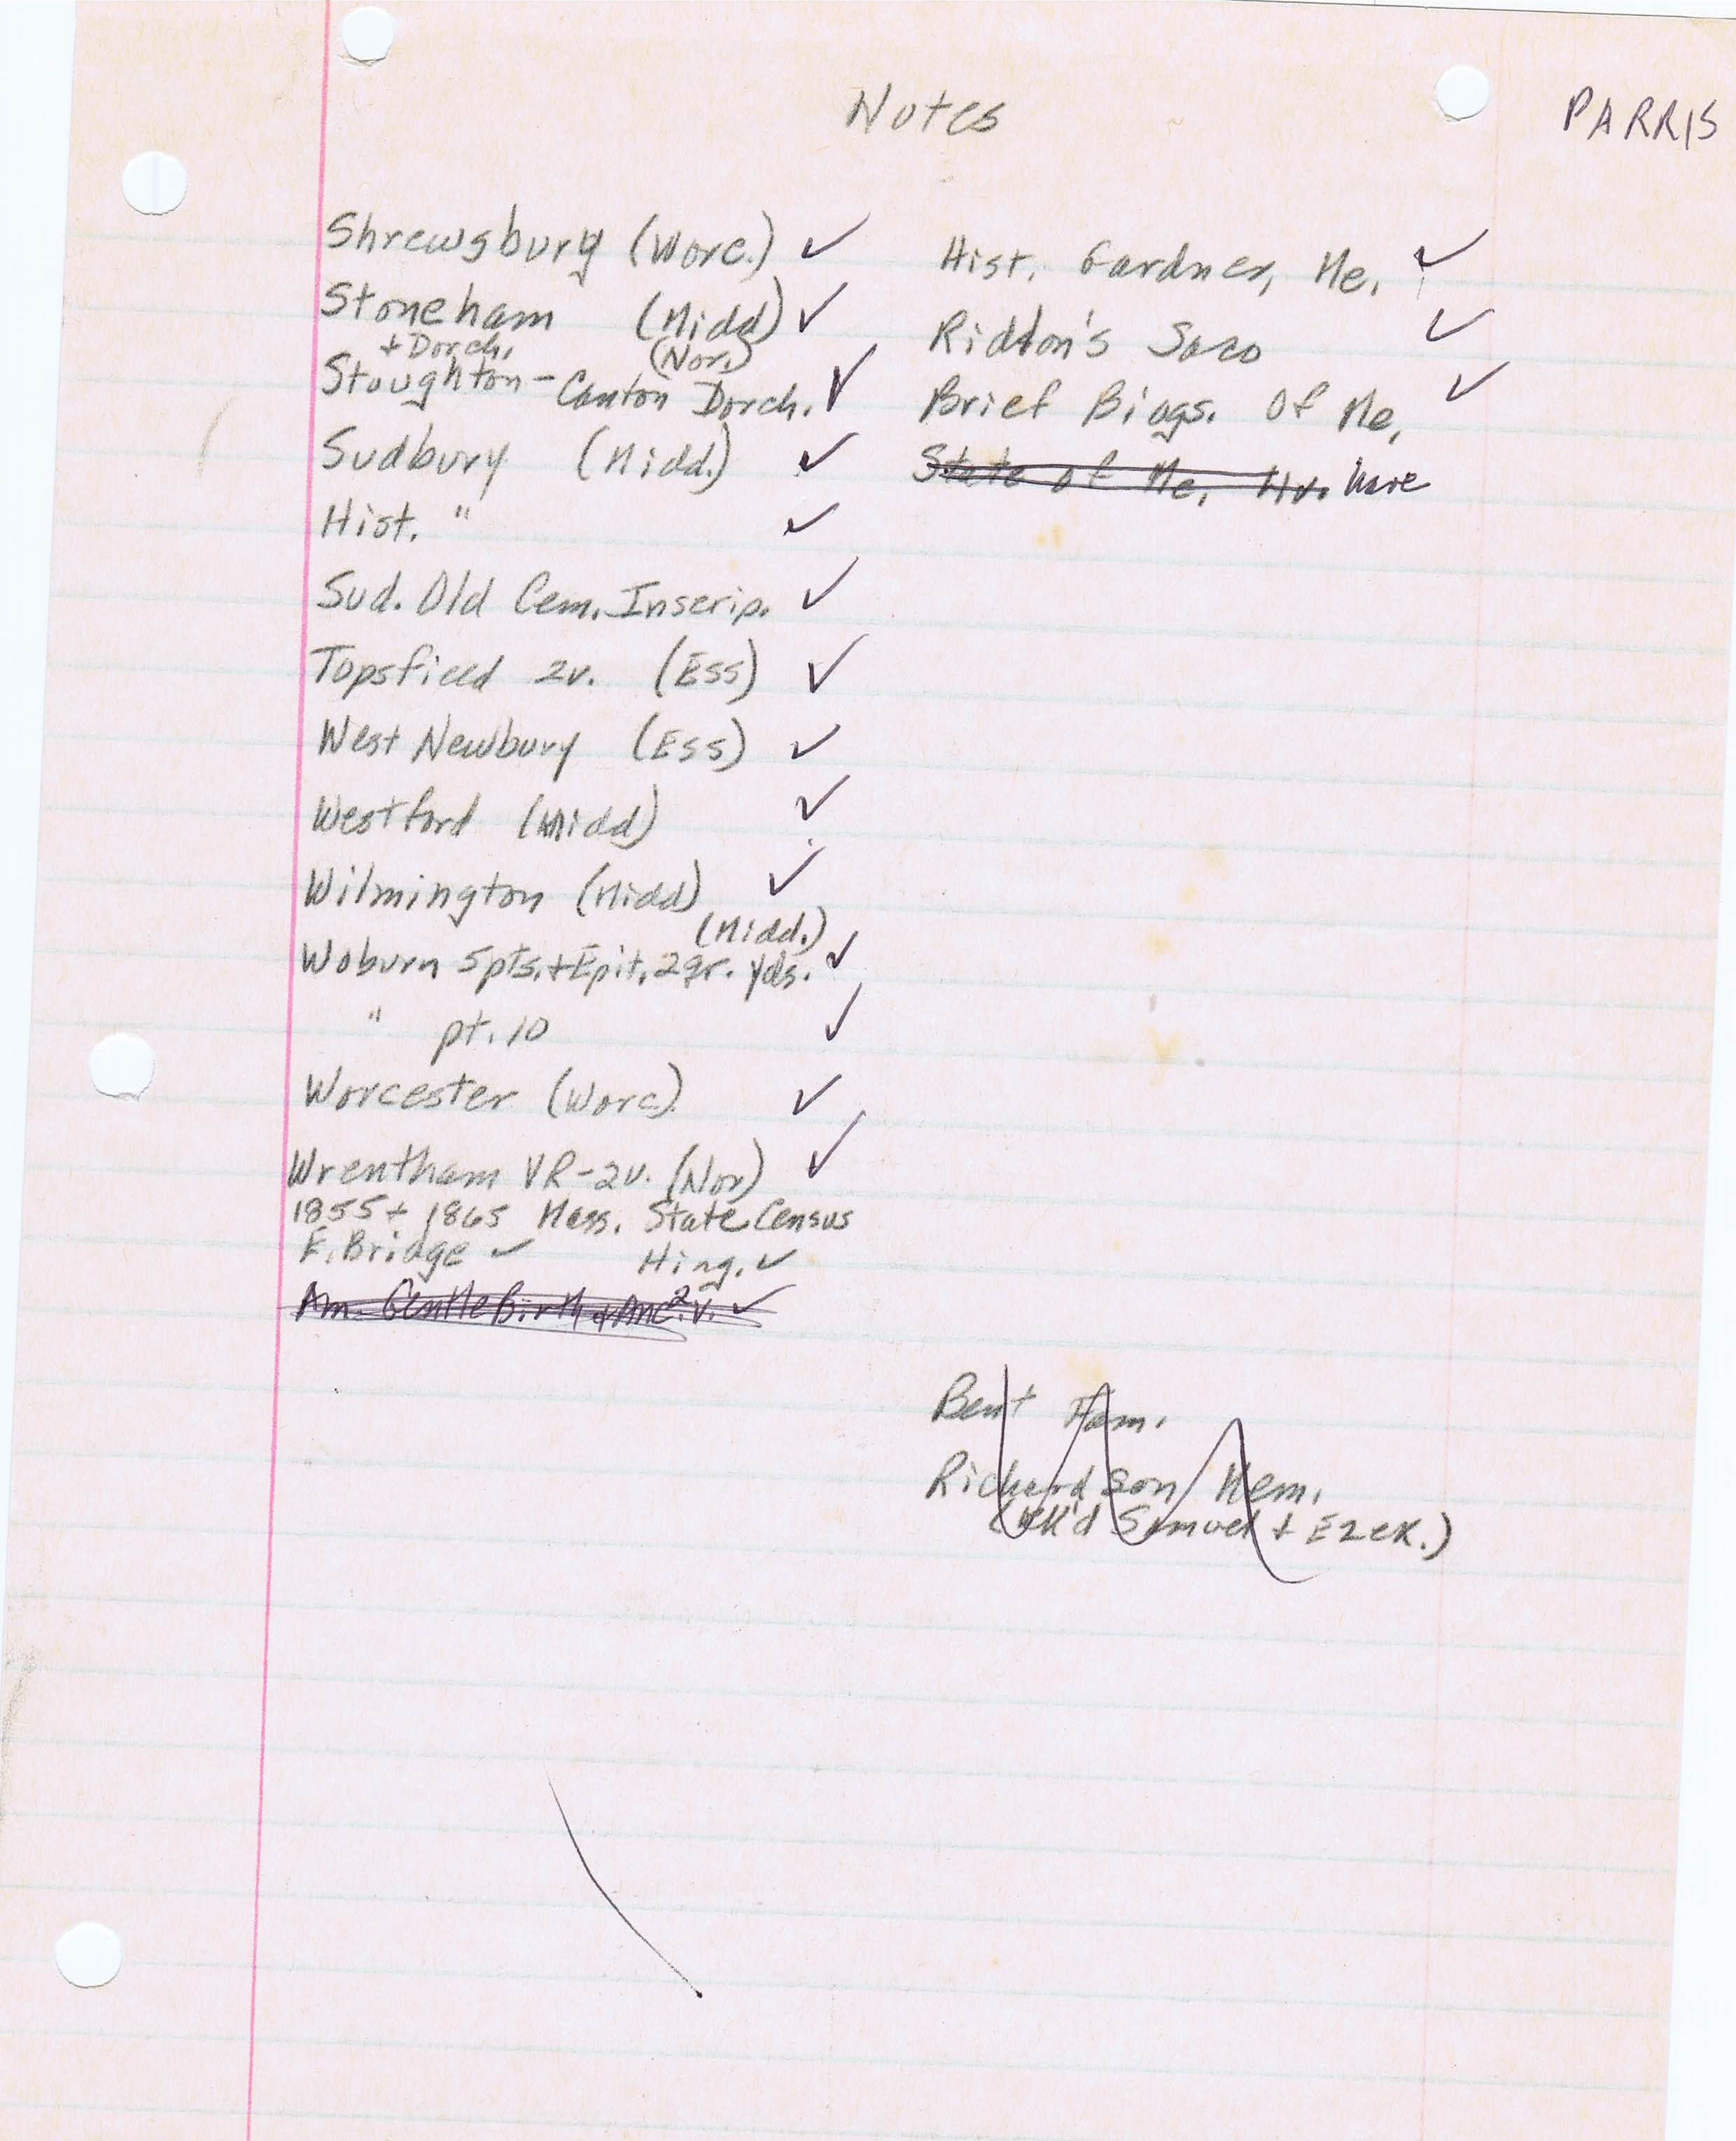 Notes
PARRIS
Shrewsbury (Worc.) ✓
Stoneham (Midd) ✓
+ Dorch. (Nor.)
Stoughton - Canton Dorch. ✓
Sudbury (Midd.) ✓
Hist. " ✓
Sud. Old Cem. Inscrip. ✓
Topsfield 2v. (Ess) ✓
West Newbury (Ess) ✓
Westford (Midd) ✓
Wilmington (Midd) ✓
(Midd.)
Woburn 5pts. + Epit. 2 gr. yds. ✓
" pt. 10 ✓
Worcester (Worc) ✓
Wrentham VR-2v. (Nor) ✓
1855 + 1865 Mass. State Census
E. Bridge ✓ Hing. ✓
Am. Gentle Birth + Anc. 2v. ✓
Hist. Gardner, Me. ✓
Ridlon's Saco ✓
Brief Biogs. Of Me. ✓
State of Me. have
Bent Fam.
Richardson Mem.
(ck'd Samuel + Ezek.)